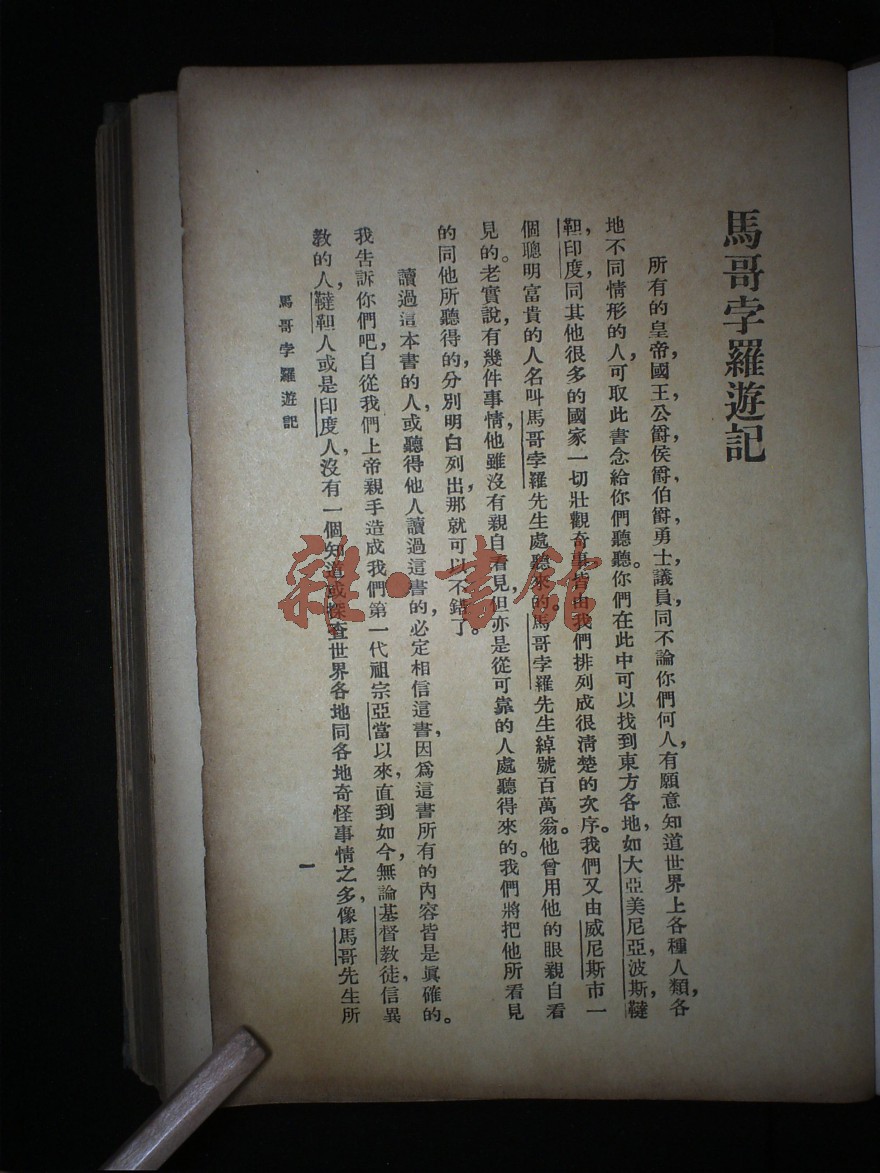 馬哥孛羅遊記
所有的皇帝，國王，公爵，侯爵，伯爵，勇士，議員，同不論你們何人，有願意知道世界上各種人類，各
地不同情形的人，可取此書念給你們聽聽。你們在此中可以找到東方各地，如大亞美尼亞，波斯，韃
靼，印度，同其他很多的國家一切壯觀奇事，皆由我們排列成很清楚的次序。我們又由威尼斯市一
個聰明富貴的人名叫馬哥孛羅先生處聽來的。馬哥孛羅先生綽號百萬翁。他曾用他的眼親自看
見的。老實說，有幾件事情，他雖沒有親自看見，但亦是從可靠的人處聽得來的。我們將把他所看見
的同他所聽得的，分別明白列出，那就可以不錯了。
讀過這本書的人，或聽得他人讀過這書的，必定相信這書，因爲這書所有的內容皆是眞確的。
我告訴你們吧，自從我們上帝親手造成我們第一代祖宗亞當以來，直到如今，無論基督教徒，信異
教的人，韃靼人或是印度人，沒有一個知道或探查世界各地同各地奇怪事情之多，像馬哥先生所
馬哥孛羅遊記
一
雜·書館